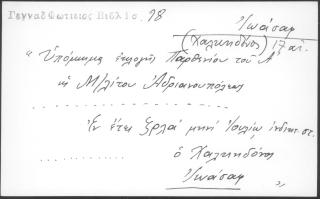 Γενναδ Φωτιειος Βιβλιο. 98
Ἰωάσαφ
(Χαλκηδόνος) 17 αἰ.
"Ὑπόμνημα ἐκλογῆς Παρθενίου τοῦ Α'
ὡς Μ/λίτου Ἀδριανουπόλεως
. . . . . . . . . . . . . . . . . . . . . . . . . .
Ἐν ἔτει ζρλα' μηνὶ Ἰουλίῳ ἰνδικτ. στ.
. . . . . . . . . . . . ὁ Χαλκηδόνος
Ἰωάσαφ "